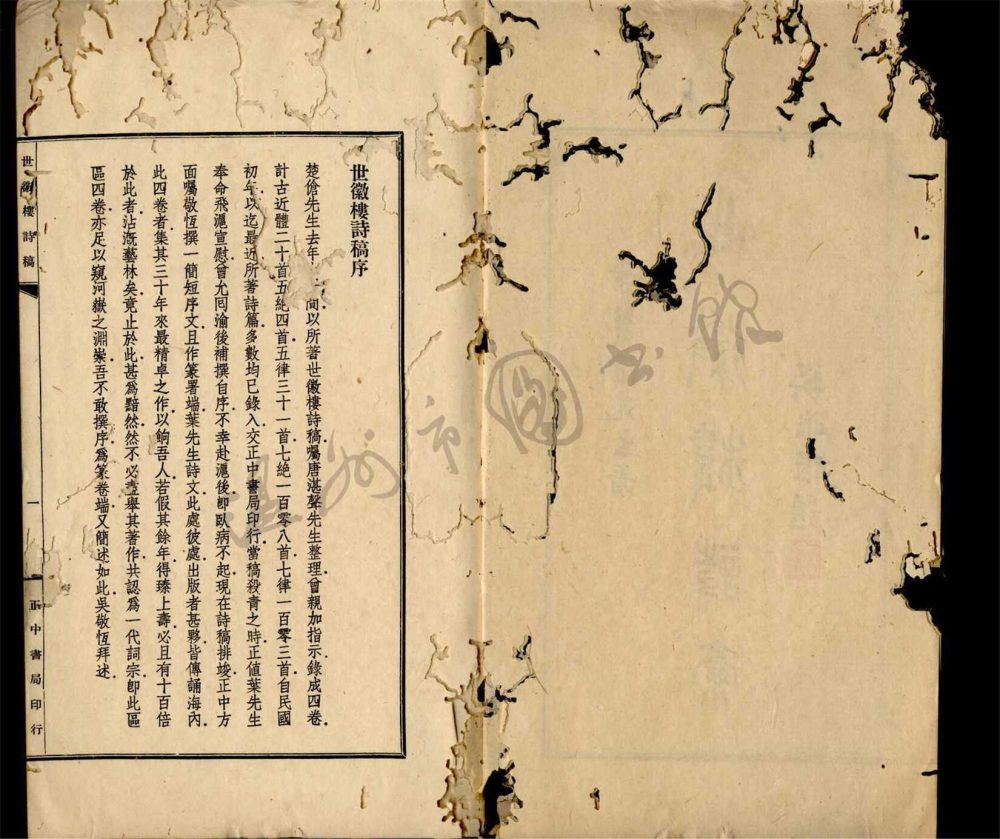 世徽樓詩稿序
楚傖先生去年 間以所著世徽樓詩稿囑唐湛聲先生整理曾親加指示錄成四卷.
計古近體二十首五絕四首五律三十一首七絕一百零八首七律一百零三首自民國
初年以迄最近所著詩篇多數均已錄入交正中書局印行當稿殺青之時正値葉先生
奉命飛滬宣慰曾允囘渝後補撰自序不幸赴滬後卽臥病不起現在詩稿排竣正中方
面囑敬恆撰一簡短序文且作篆署端葉先生詩文此處彼處出版者甚夥皆傳誦海內.
此四卷者集其三十年來最精卓之作以餉吾人若假其餘年得臻上壽必且有十百倍
於此者沾漑藝林矣竟止於此甚爲黯然然不必盡舉其著作共認爲一代詞宗卽此區
區四卷亦足以窺河嶽之淵崇吾不敢撰序爲篆卷端又簡述如此吳敬恆拜述.
世徽樓詩稿
一
正中書局印行
市圖書館